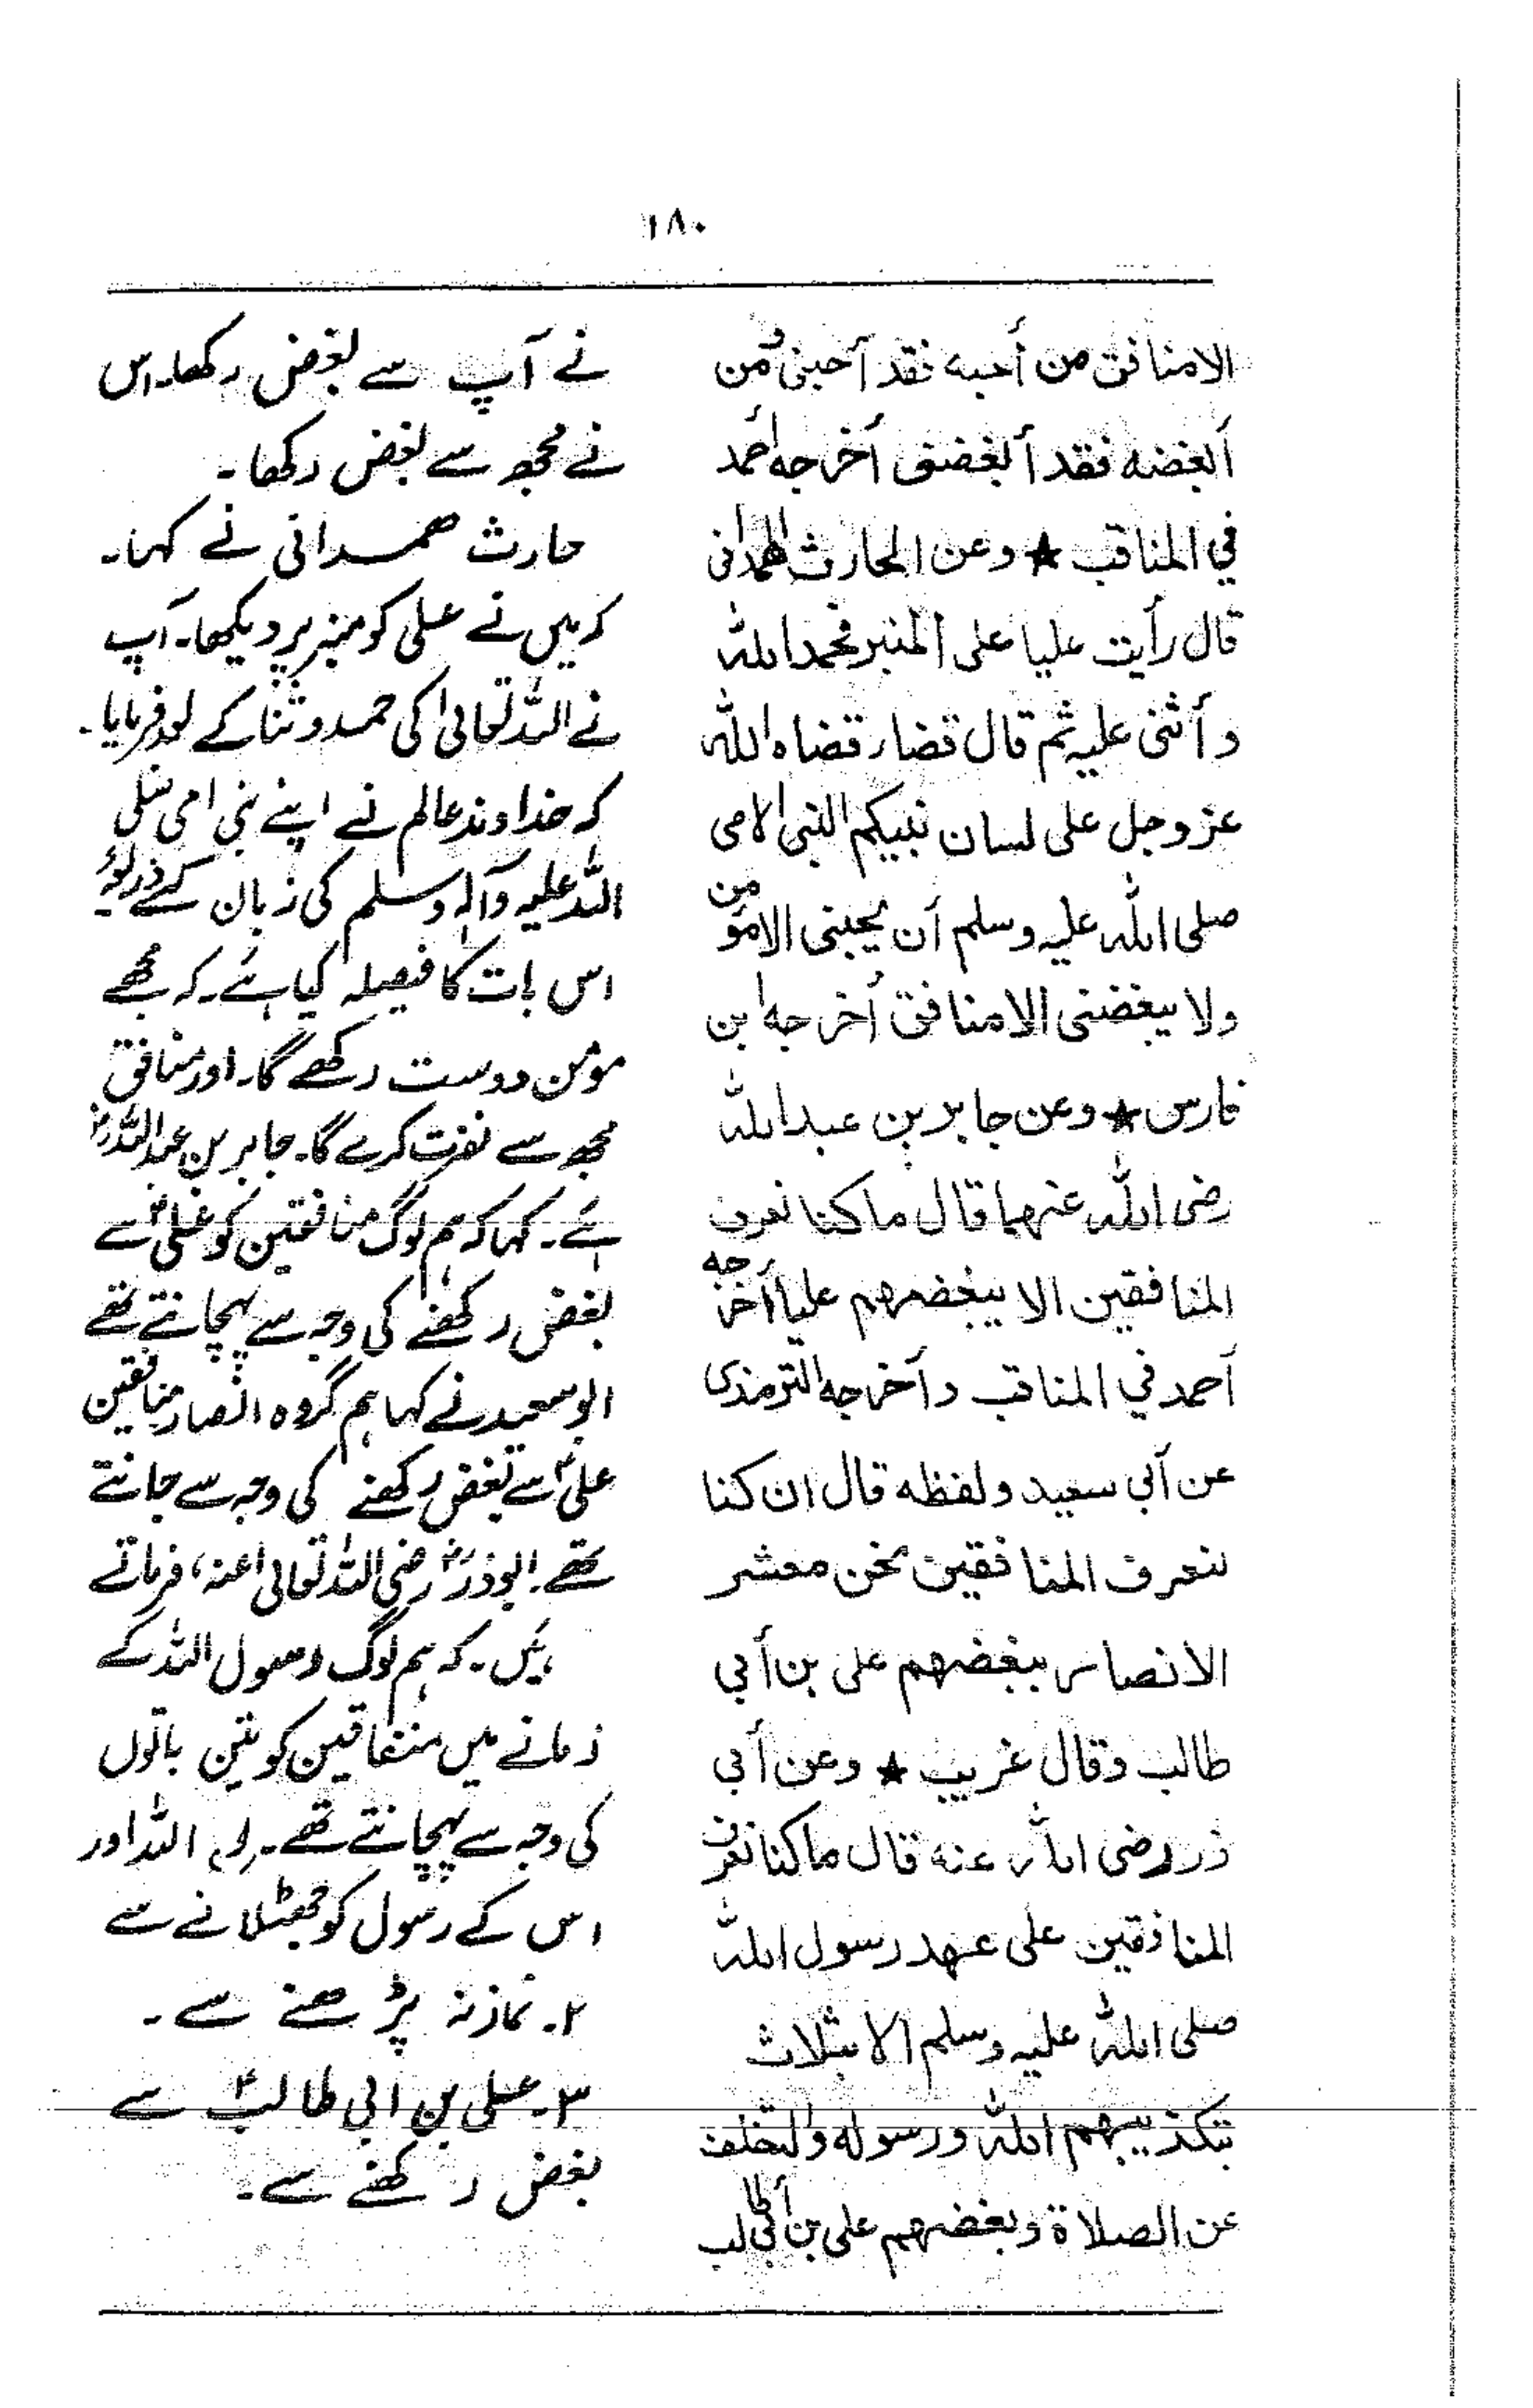 ١٨٠
الامنافق من أحبه فقد أحبنى ومن
أبغضه فقد أبغضنى أخرجه أحمد
في المناقب ★ وعن الحارث الهمدانى
قال رأيت عليا على المنبر فحمد الله
وأثنى عليه ثم قال قضاء قضاه الله
عز وجل على لسان نبيكم النبى الامى
صلى الله عليه وسلم أن يحبنى الامؤمن
ولا يبغضنى الامنافق أخرجه ابن
فارس ★ وعن جابر بن عبد الله
رضى الله عنهما قال ماكنا نعرف
المنافقين الا ببغضهم عليا أخرجه
أحمد في المناقب وأخرجه الترمذى
عن أبى سعيد ولفظه قال ان كنا
لنعرف المنافقين نحن معشر
الانصار ببغضهم على بن أبي
طالب وقال غريب ★ وعن أبى
ذر رضى الله عنه قال ماكنا نعرف
المنافقين على عهد رسول الله
صلى الله عليه وسلم الا بثلاث
بتكذيبهم الله ورسوله والتخلف
عن الصلاة وبغضهم على بن أبى طالب
نے آپ سے بغض رکھا۔ اس
نے مجھ سے بغض رکھا۔
حارث ھمدانی نے کہا۔
کہ میں نے علی کو منبر پر دیکھا۔ آپ
نے اللہ تعالیٰ کی حمد و ثنا کے بعد فرمایا۔
کہ خداوند عالم نے اپنے نبی امی صلی
اللہ علیہ وآلہ وسلم کی زبان کے ذریعہ
اس بات کا فیصلہ کیا ہے۔ کہ مجھے
مؤمن دوست رکھے گا۔ اور منافق
مجھ سے نفرت کرے گا۔ جابر بن عبداللہ رض
ہے۔ کہا کہ ہم لوگ منافقین کو علیؑ سے
بغض رکھنے کی وجہ سے پہچانتے تھے
ابوسعید نے کہا ہم گروہ انصار منافقین
علیؑ سے بغض رکھنے کی وجہ سے جانتے
تھے۔ ابوذر رض رضی اللہ تعالیٰ عنہ، فرماتے
ہیں۔ کہ ہم لوگ رسول اللہ کے
زمانے میں منفاقین کو تین باتوں
کی وجہ سے پہچانتے تھے۔ (۱) اللہ اور
اس کے رسول کو جھٹلانے سے
۲۔ نماز نہ پڑھنے سے۔
۳۔ علی بن ابی طالبؑ سے
بغض رکھنے سے۔